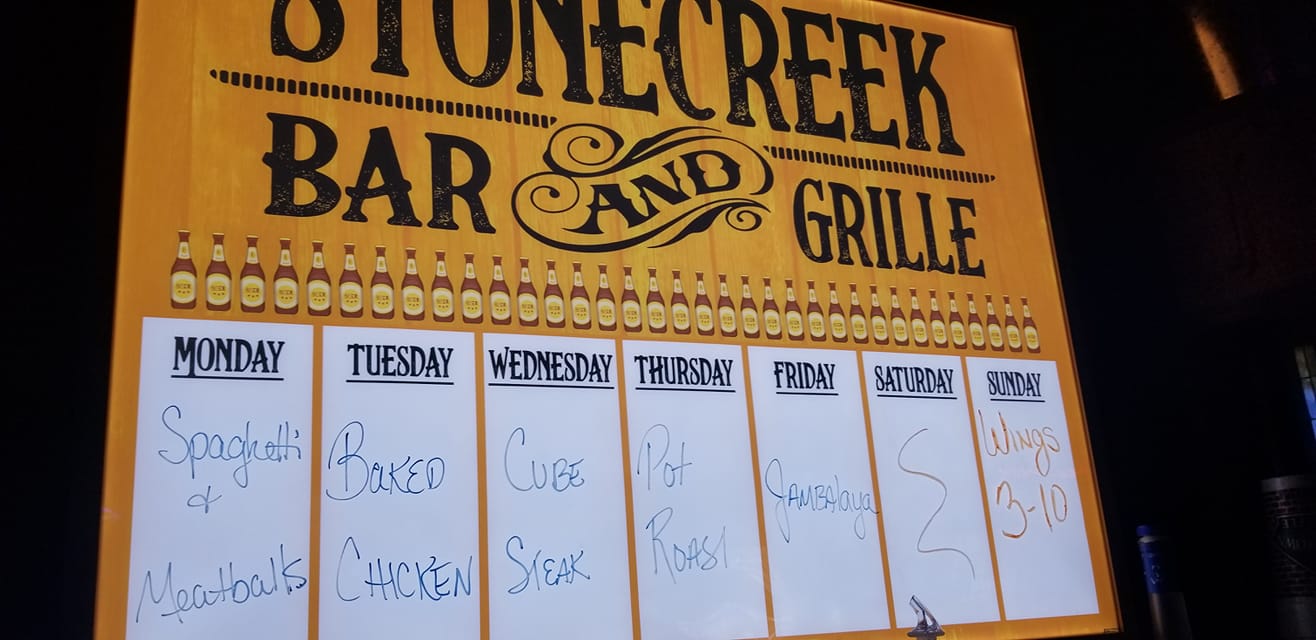 STONECREEK
BAR AND GRILLE
MONDAY
Spaghetti
&
Meatballs
TUESDAY
BAKED
CHICKEN
WEDNESDAY
CUBE
STEAK
THURSDAY
Pot
ROAST
FRIDAY
JAMBAlaya
SATURDAY
SUNDAY
WINGS
3-10